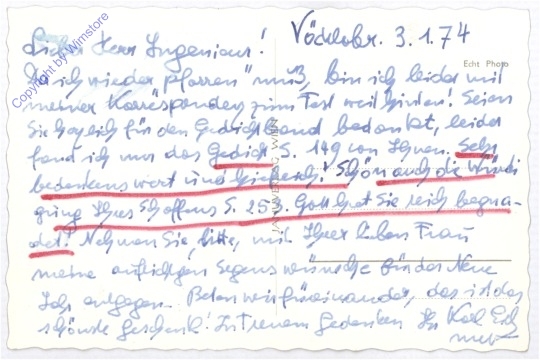 Lieber Herr Ingenieur! Vöcklabr. 3.1.74
Echt Photo
Da ich wieder "pfarren" muß, bin ich leider mit
meiner Korrespondenz zum Teil weit hinten! Seien
Sie herzlich für den Gedichtband bedankt, leider
fand ich nur das Gedicht S. 149 von Ihnen. Sehr
bedenkenswert und! Schön auch die Würdi
gung Ihres Schaffens S. 255. Gott hat Sie reich begna-
det! Nehmen Sie, bitte, mit Ihrer lieben Frau
meine aufrichtigen Segenswünsche für das Neue
Jahr entgegen. Beten wir füreinander, das ist das
schönste Geschenk! In treuem Gedenken Ihr Karl
WIEN
Copyright by Wimstore